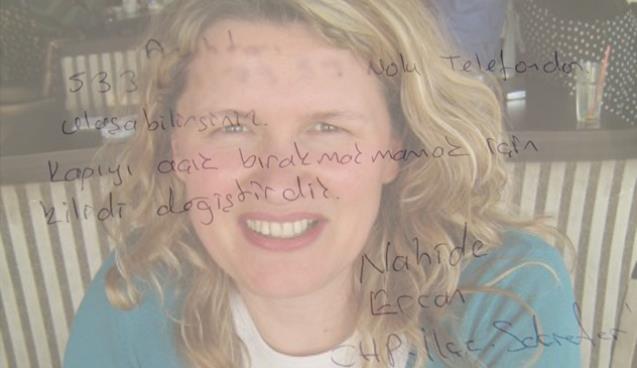 533 Nolu Telefondan
ulaşabilirsiniz.
Kapıyı açık bırakmamak için
kilidi değiştirdik.
Nahide
Ercan
CHP. İlçe. Sekreteri